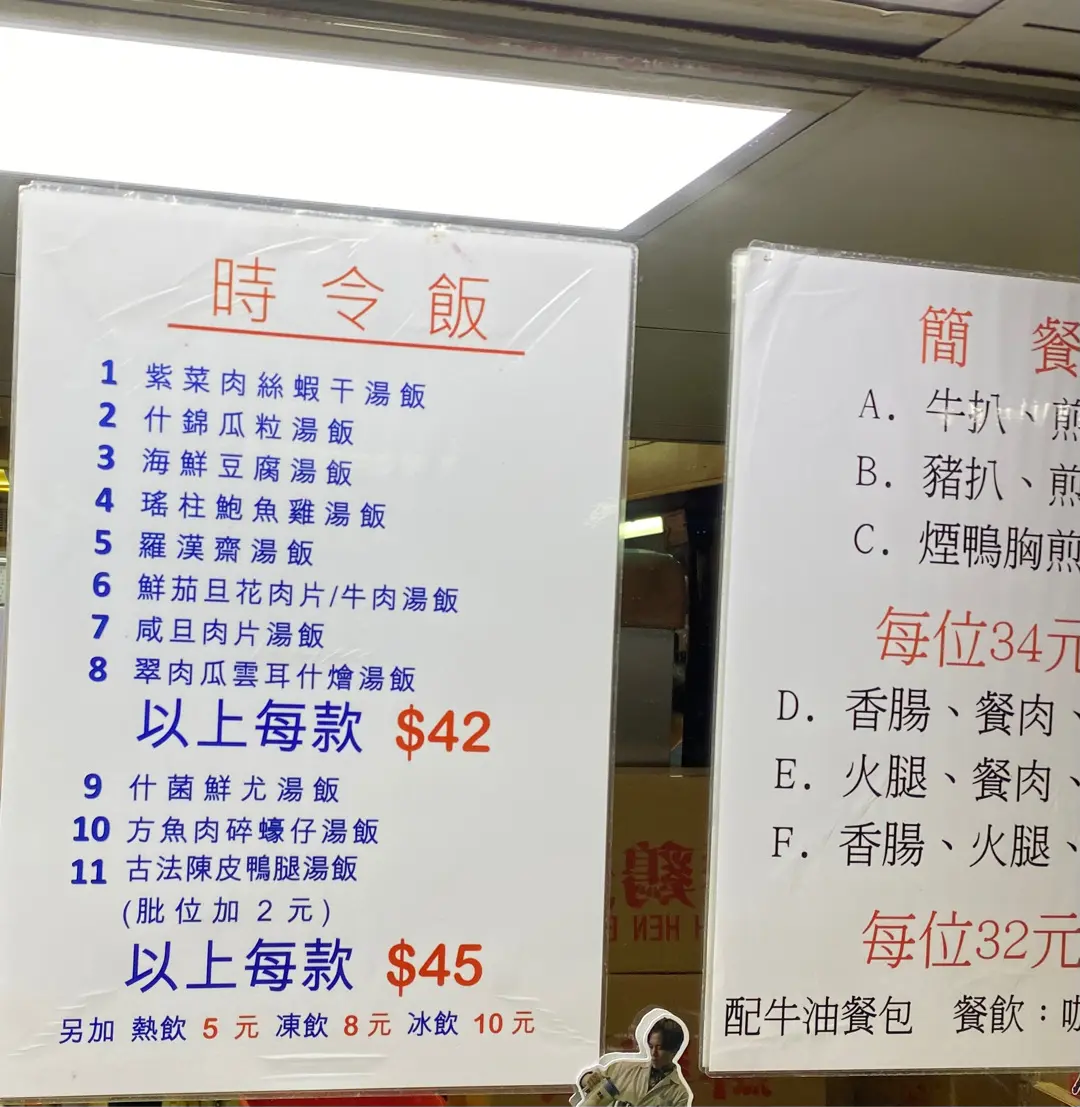 時令飯
1 紫菜肉絲蝦干湯飯
2 什錦瓜粒湯飯
3 海鮮豆腐湯飯
4 瑤柱鮑魚雞湯飯
5 羅漢齋湯飯
6 鮮茄旦花肉片/牛肉湯飯
7 咸旦肉片湯飯
8 翠肉瓜雲耳什燴湯飯
以上每款 $42
9 什菌鮮尤湯飯
10 方魚肉碎蠔仔湯飯
11 古法陳皮鴨腿湯飯
(肶位加 2 元)
以上每款 $45
另加 熱飲 5 元 凍飲 8元 冰飲 10元
簡 餐
A. 牛扒、煎
B. 豬扒、煎
C. 煙鴨胸煎
每位34元
D. 香腸、餐肉、
E. 火腿、餐肉、
F. 香腸、火腿、
每位32元
配牛油餐包 餐飲：咖
鷄
HEN